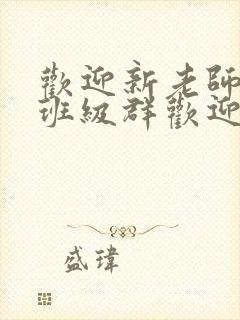 歡迎新老師
班級群歡迎
盛瑋